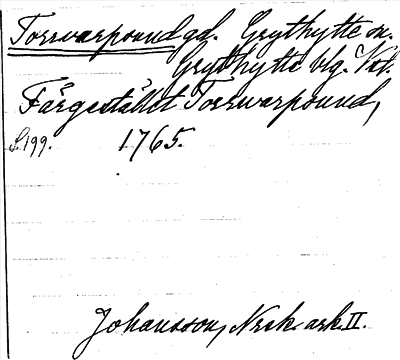 Torrvarpsund gd. Grythytte sn.
Grythytte blg. Vstl.
Färgestället Torrvarpsund,
S. 199. 1765.
Johansson, Nrsk. ark. II.